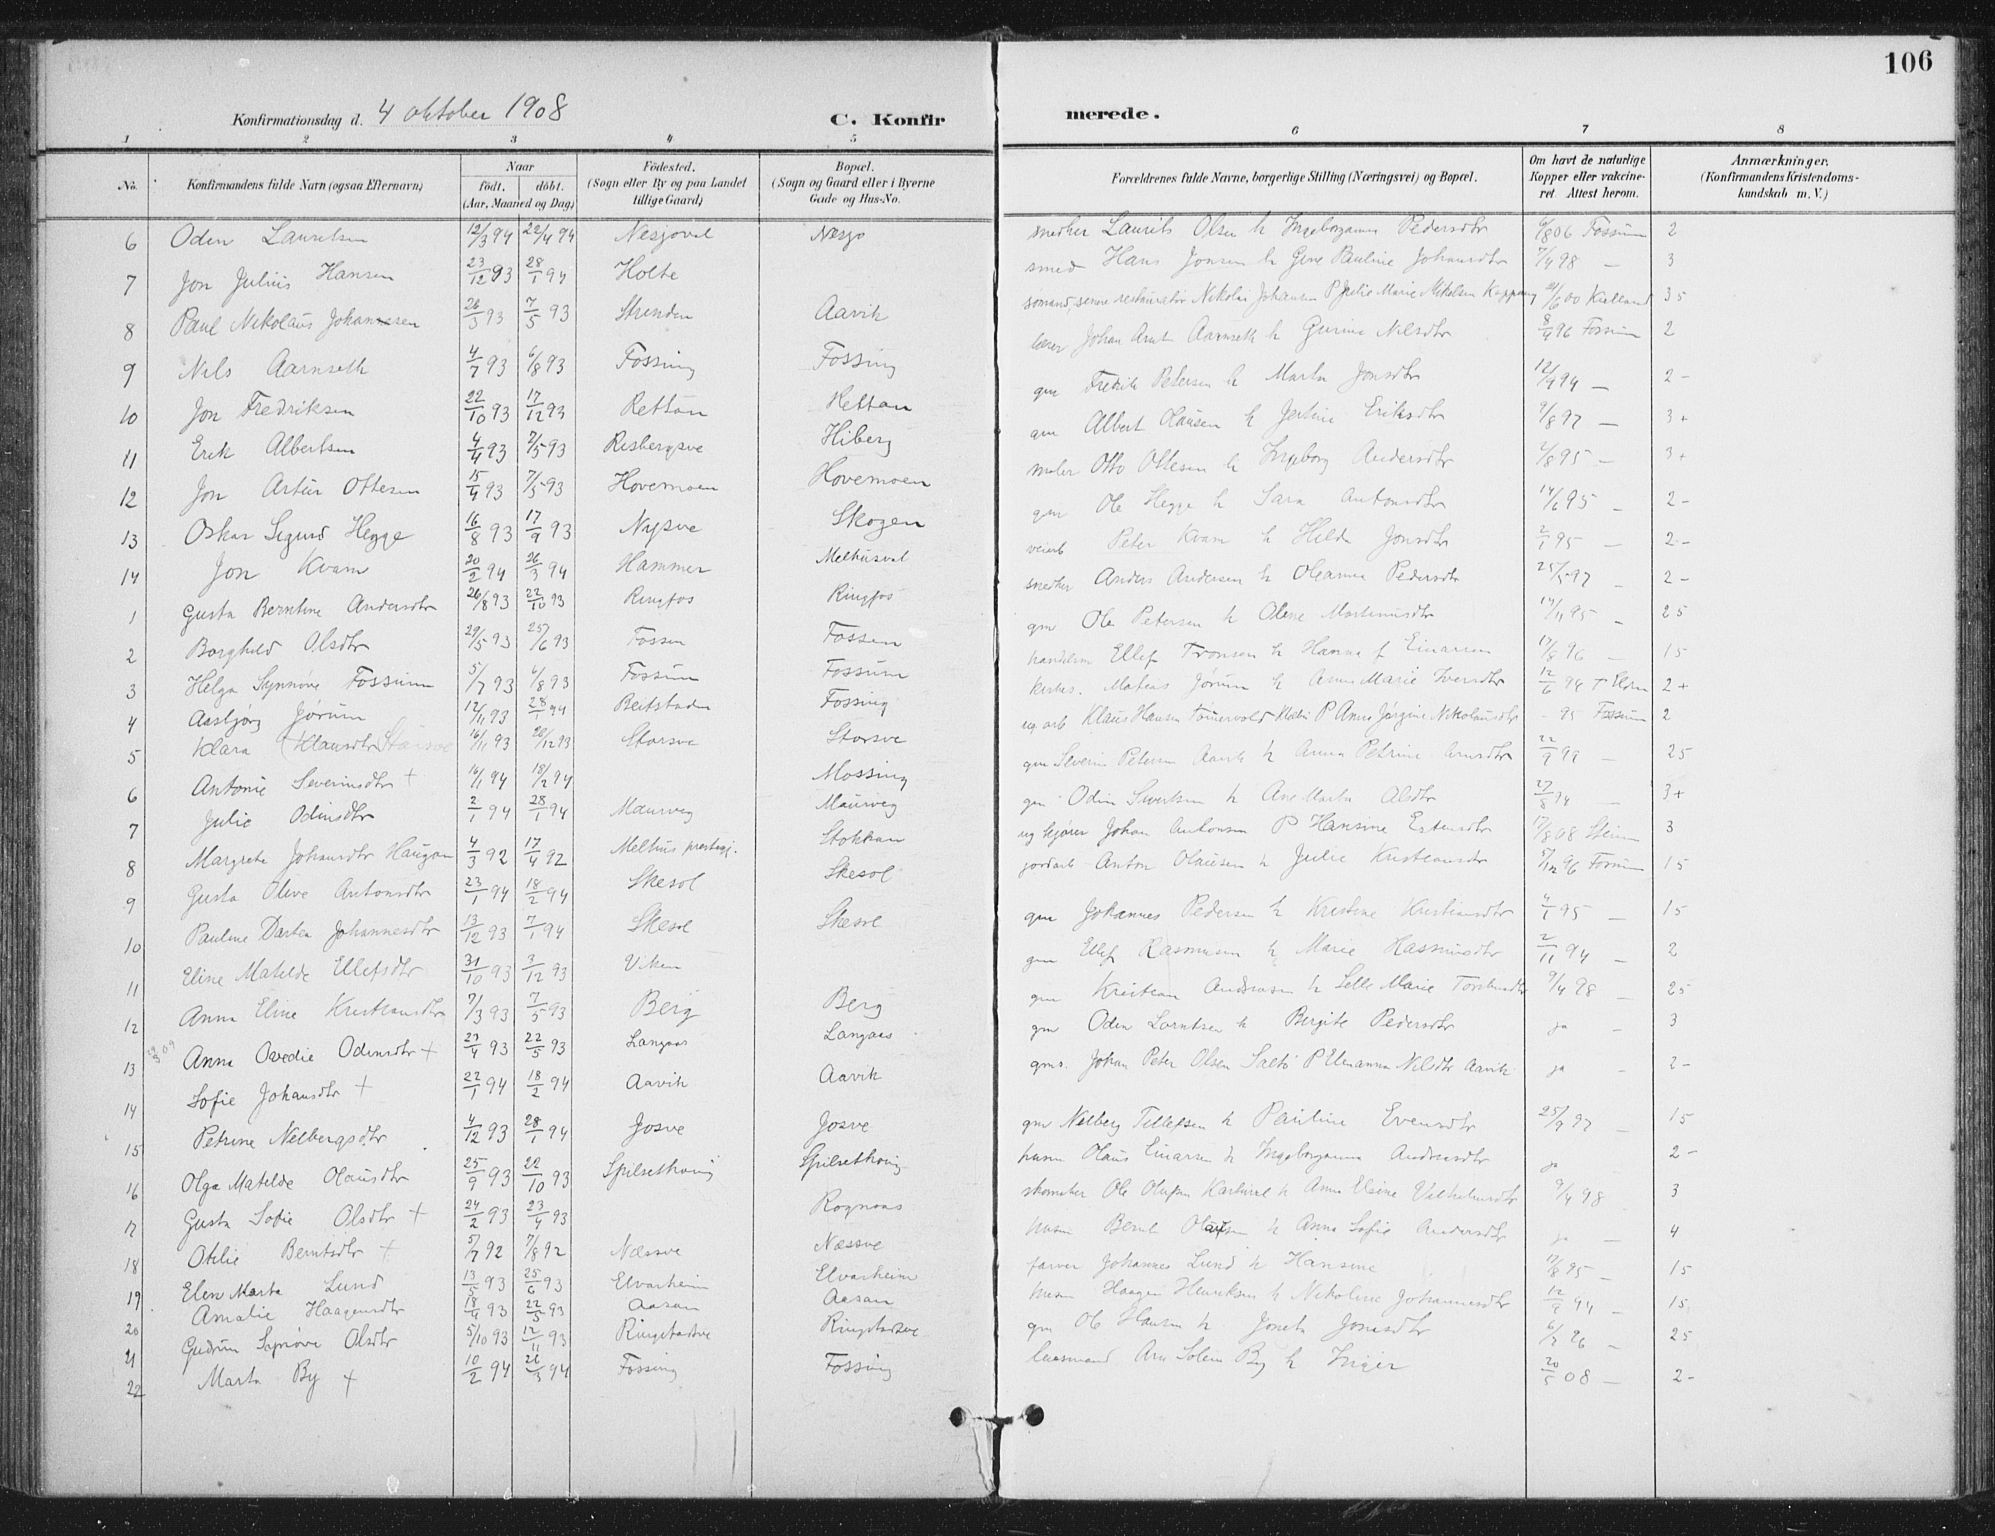 106
Konfirmationsdag d. 4 oktober 1908 C. Konfirmerede.
1 2 3 4 5 6 7 8
No. Konfirmandens fulde Navn (ogsaa Efternavn) Naar født. døbt. (Aar, Maaned og Dag) Fødested. (Sogn eller By og paa Landet tillige Gaard) Bopæl. (Sogn og Gaard eller i Byerne Gade og Hus-No. Forældrenes fulde Navne, borgerlige Stilling (Næringsvei) og Bopæl. Om havt de naturlige Kopper eller vakcineret. Attest herom. Anmærkninger. (Konfirmandens Kristendomskundskab m. V.)
6 Oden Lauritsen 12/3 94 22/4 94 Nesjoval Nesjo snedker Laurits Olsen h Ingeborganna Pedersdtr 6/8 06 Fossum 2
7 Jon Julius Hansen 23/12 93 28/1 94 Holte smed Hans Jonsen h Gine Pauline Johansdtr 7/4 98 — 3
8 Paul Nikolaus Johannesen 26/3 93 7/5 93 Strinden Aavik Nikolai Johansen P Julie Marie Nikolsen 00 35
9 Nils Aarnseth 4/7 93 6/8 93 Fossing Fossing lærer Johan Arnt Aarnseth h Gurine Nilsdtr 8/9 96 Fossum 2
10 Jon Fredriksen 22/10 93 17/12 93 Rettan Rettan gm Fredrik Petersen h Marta Jonsdtr 12/9 94 — 2-
11 Erik Albertsen 4/4 93 7/5 93 Risbergsve Hiberg gm Albert Olausen h Jertine Eriksdtr 9/8 97 — 3+
12 Jon Artur Ottesen 15/4 93 7/5 93 Hovemoen Hovemoen maler Otto Ottesen h Ingeborg Andersdtr 95 — 3+
13 Oskar Sigurd Hegge 16/8 93 17/9 93 Nypve Skogen gm Ole Hegge h Sara Antonsdtr 14/6 95 — 2-
14 Jon Kvam 20/2 94 26/3 94 Hammer Melhusval veiarb Peter Kvam h Hilda Jonsdtr 2/1 95 — 2-
1 Gusta Berntine Andersdtr 26/8 93 22/10 93 Ringfos Ringfos snedker Anders Andersen h Oleanna Pedersdtr 25/5 97 — 2-
2 Borghild Olsdtr 29/5 93 25/6 93 Fossen Fossen gm Ole Petersen h Oline Martinusdtr 14/11 95 — 25
3 Helga Synnøve Fossum 5/7 93 6/8 93 Fossum Fossum handelsm Ellef Tronsen h Hanna f Einarsen 96 — 15
4 Aasbjørg Jørum 12/11 93 28/1 94 Beitstaden Fossing kirkes. Mateus Jørum h Anna Marie Iversdtr 12/6 94 2+
5 Klara (Klausdtr Storsve 16/11 93 26/12 93 Storsve Storsve ug arb Klaus Hansen P Anna Jørgine Nikolausdtr - 95 Fossum 2
6 Antonie Severinsdtr + 16/1 94 18/2 94 Mossing gm Severin Petersen Aavik h Anna Petrine Arnsdtr 22/9 99 — 25
7 Julie Odinsdtr 2/1 94 28/1 94 Maurveg Maurveg gm Odin Sivertsen h Ane Marta Olsdtr 27/8 94 — 3+
8 Margrete Johansdtr Haugan 4/3 92 17/4 92 Melhus prestegj. Stokkan ug kjører Johan Antonsen P Hansine Estensdtr 17/8 08 Stein 3
9 Gusta Olive Antonsdtr 23/1 94 18/2 94 Skesol Skesol jordarb Anton Olausen h Julie Kristiansdtr 5/12 96 Fossum 15
10 Pauline Dartea Johannesdtr 13/12 93 7/1 94 Skesol Skesol gm Johannes Pedersen h Kristine Kristiansdtr 4/1 95 — 15
11 Eline Matilde Ellefsdtr 31/10 93 3/12 93 Viken gm Ellef Rasmusen h Marie Rasmusdtr 2/11 94 — 2
12 Anna Eline Kristiansdtr 7/3 93 7/5 93 Berg Berg gm Kristian Andreasen h Selle Marie 9/4 98 — 25
13 Anna Ovedie Odinsdtr + 23/4 93 22/5 93 Langaas Langaas gm Oden Lorntsen h Bergite Pedersdtr ja — 3
14 Sofie Johansdtr + 22/1 94 18/2 94 Aavik Aavik gms. Johan Peter Olsen P Elenanna Nilsdtr Aavik ja — 2-
15 Petrine Nelbergsdtr 4/12 93 28/1 94 Josve Josve gm Nelberg Tellefsen h Pauline Evensdtr 25/9 97 — 15
16 Olga Matilde Olausdtr 25/9 93 22/10 93 Spilsethaug Spilsethaug husm Olaus Einarsen h Ingeborganna Andreasdtr ja — 2-
17 Gusta Sofie Olsdtr + 24/2 93 23/4 93 Rognaas skomaker Ole Olufsen h Anna Elsine Vilhelmsdtr 9/4 98 — 3
18 Otilie Berntsdtr + 5/7 92 7/8 92 Næssve Næssve husm Bernt Olausen h Anna Sofie Andersdtr ja — 4
19 Elen Marta Lund 13/5 93 25/6 93 Elvarheim Elvarheim farver Johannes Lund h Hansine 12/8 95 — 15
20 Amalie Haagensdtr 18/4 93 22/5 93 Aasan Aasan husm Haagen Henriksen h Nikoline Johannesdtr 12/9 94 — 15
21 Gudrun Synnøve Olsdtr 5/10 93 12/11 93 Ringstadsve Ringstadsve gm Ole Hansen h Joneta Jonsdtr 6/7 96 — 25
22 Marta By + 10/2 94 26/3 94 Fossing Fossing lensmand Arn Solem By h Inger 20/5 08 — 2-